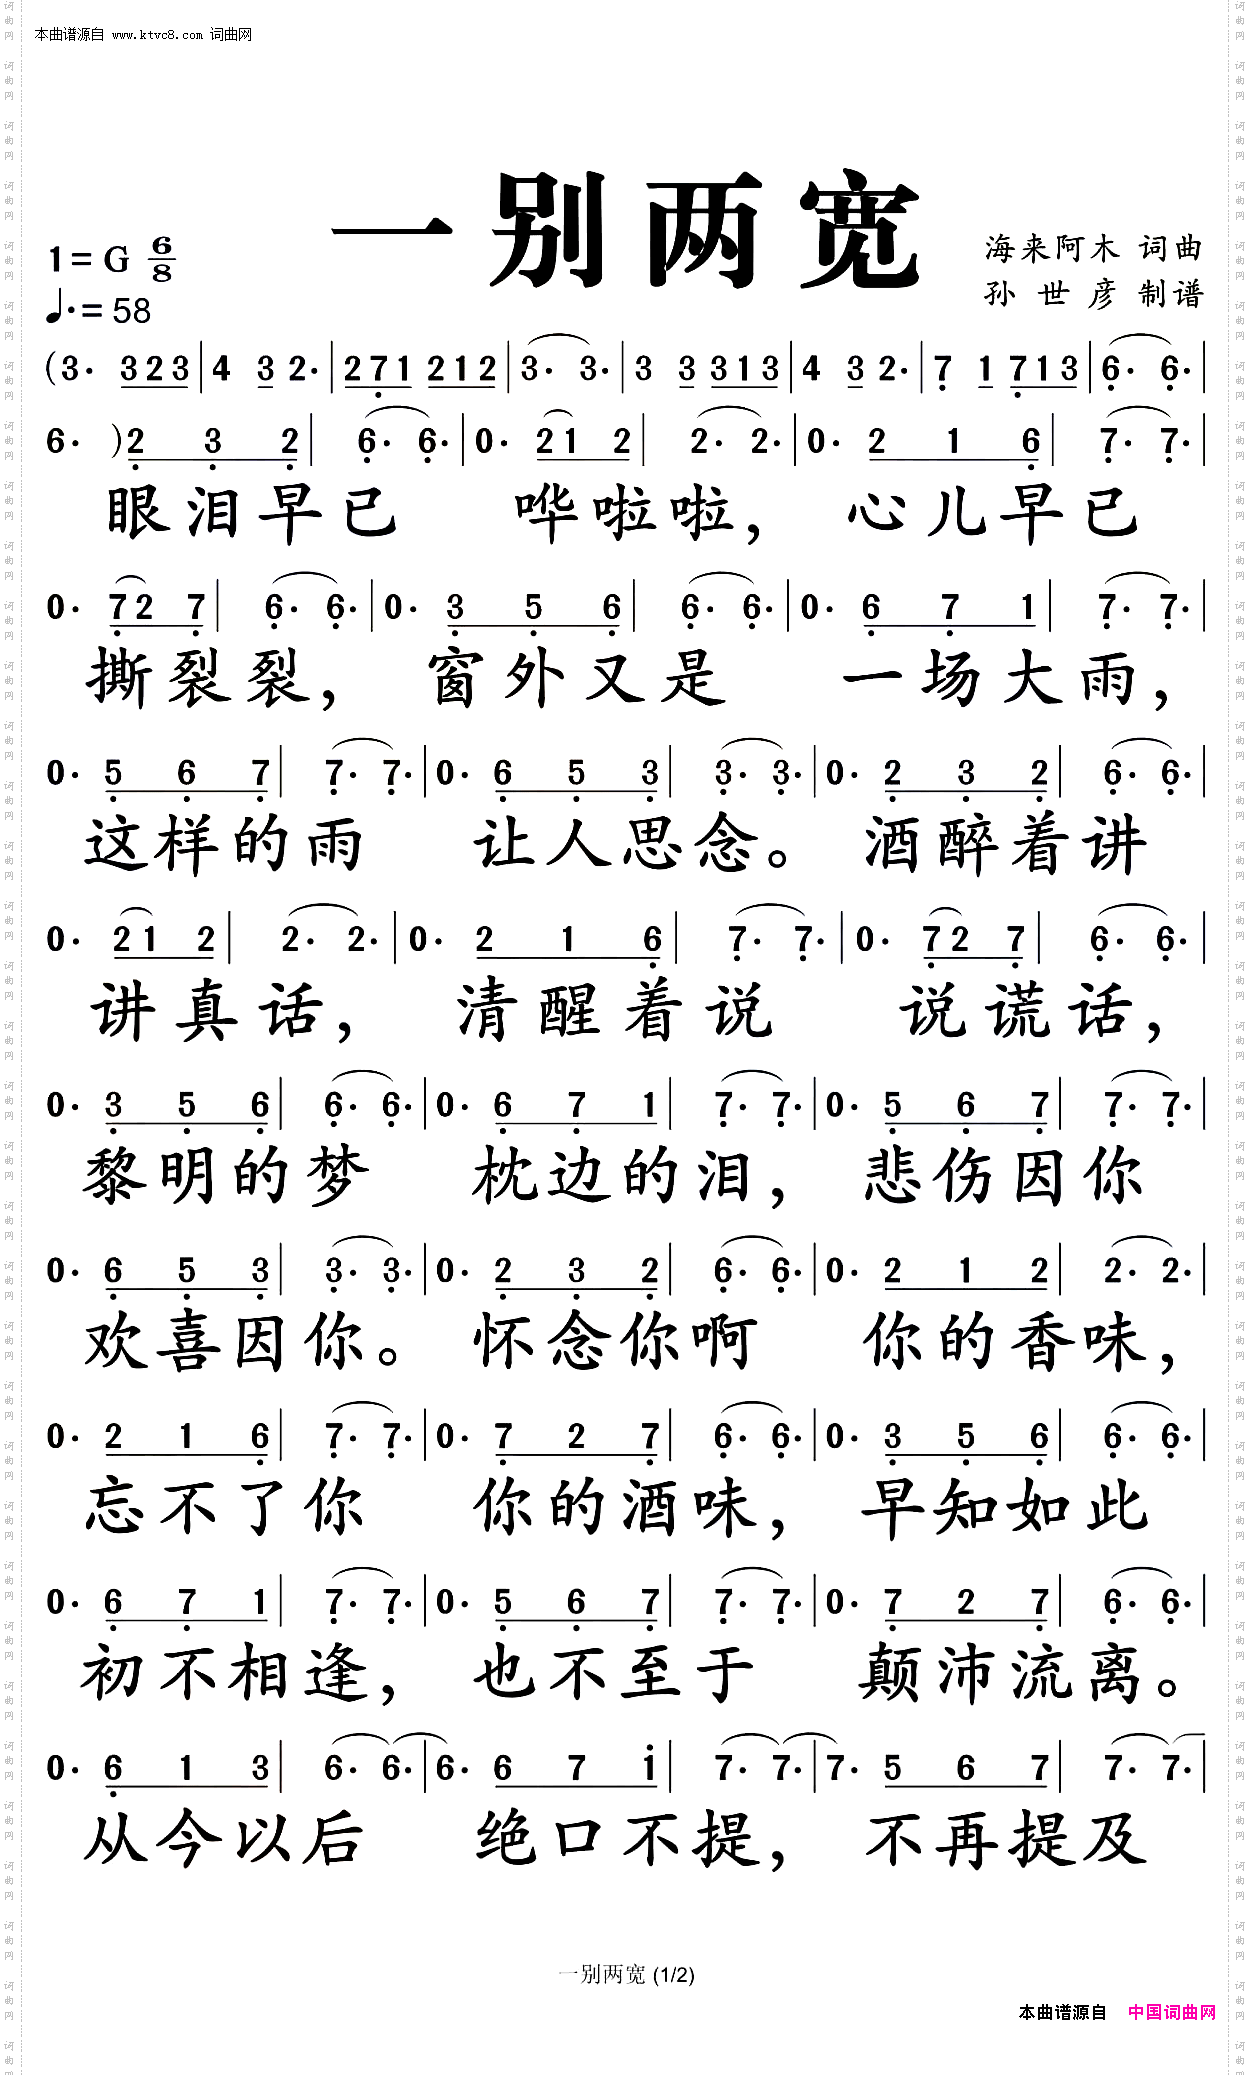 本曲谱源自 www.ktvc8.com 词曲网
一别两宽
1=G 6/8
♩.=58
海来阿木 词曲
孙世彦 制谱
(3· 3 2 3 | 4 3 2· | 2 7̣ 1 2 1 2 | 3· 3· | 3 3 3 1 3 | 4 3 2· | 7̣ 1 7̣ 1 3 | 6̣· 6̣· |
6· ) 2̣ 3̣ 2̣ | 6̣· 6̣· | 0· 2 1 2 | 2· 2· | 0· 2 1 6̣ | 7̣· 7̣· |
眼泪早已 哗啦啦，心儿早已
0· 7̣ 2 7̣ | 6̣· 6̣· | 0· 3̣ 5̣ 6̣ | 6̣· 6̣· | 0· 6̣ 7̣ 1 | 7̣· 7̣· |
撕裂裂，窗外又是 一场大雨，
0· 5̣ 6̣ 7̣ | 7̣· 7̣· | 0· 6̣ 5̣ 3̣ | 3̣· 3̣· | 0· 2̣ 3̣ 2̣ | 6̣· 6̣· |
这样的雨 让人思念。酒醉着讲
0· 2 1 2 | 2· 2· | 0· 2 1 6̣ | 7̣· 7̣· | 0· 7̣ 2 7̣ | 6̣· 6̣· |
讲真话，清醒着说 说谎话，
0· 3̣ 5̣ 6̣ | 6̣· 6̣· | 0· 6̣ 7̣ 1 | 7̣· 7̣· | 0· 5̣ 6̣ 7̣ | 7̣· 7̣· |
黎明的梦 枕边的泪，悲伤因你
0· 6̣ 5̣ 3̣ | 3̣· 3̣· | 0· 2̣ 3̣ 2̣ | 6̣· 6̣· | 0· 2 1 2 | 2· 2· |
欢喜因你。怀念你啊 你的香味，
0· 2 1 6̣ | 7̣· 7̣· | 0· 7̣ 2 7̣ | 6̣· 6̣· | 0· 3̣ 5̣ 6̣ | 6̣· 6̣· |
忘不了你 你的酒味，早知如此
0· 6̣ 7̣ 1 | 7̣· 7̣· | 0· 5̣ 6̣ 7̣ | 7̣· 7̣· | 0· 7̣ 2 7̣ | 6̣· 6̣· |
初不相逢，也不至于 颠沛流离。
0· 6̣ 1 3 | 6· 6· | 6· 6 7 1̇ | 7· 7· | 7· 5 6 7 | 7· 7· |
从今以后 绝口不提，不再提及
一别两宽 (1/2)
本曲谱源自 中国词曲网